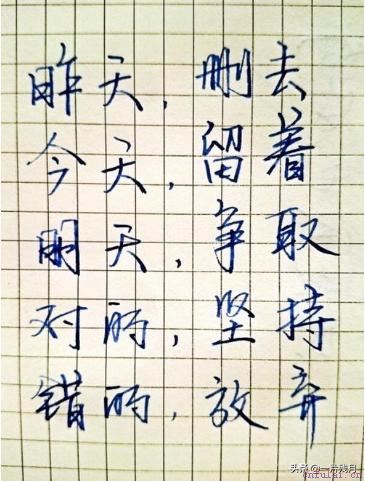 昨天，删去
今天，留着
明天，争取
对的，坚持
错的，放弃
头条@一片残月
cnfuigi.cn